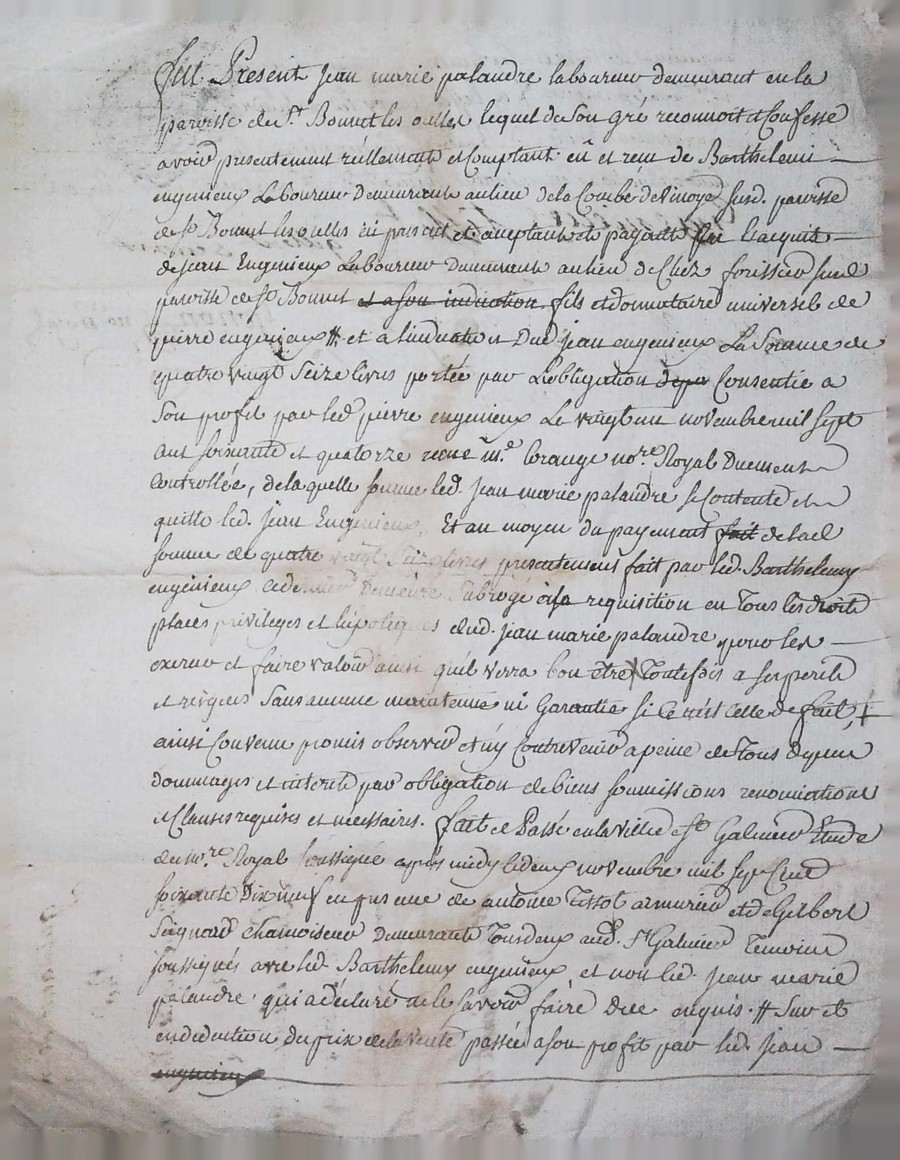 fut Present Jean marie palandre laboureur demeurant en la
paroisse de St. Bonnet les oulles lequel de son gré reconnoit et Confesse
avoir presentement réellement et Comptant eû et reçu de Barthelemi
engenieux Laboureur Demeurant au lieu de la Combe de Vinoye susd. paroisse
de St Bonnet les oulles ici present et acceptant et payant sur et acquit
de jean Engenieux Laboureur Demeurant au lieu de Chez forissier susd
paroisse de St Bonnet et a son indication fils et donnataire universel de
pierre engenieux # et a l'indication Dud. jean engenieux La Somme de
quatre vingt Seize livres portée par L'obligation Consentie a
Son profit par led. pierre engenieux Le vingt un novembre mil sept
Cent soixante et quatorze reçue me. Corange nore. Royal Duement
Controllée, de la quelle somme led. Jean marie palandre se Contente et
quitte led. Jean Engenieux, Et au moyen du payement fait de lad
somme de quatre vingt Seize livres presentement fait par led. Barthelemy
engenieux ce dernier Demeure Subrogé à sa requisition en Tous les droits
places privileges et hipoteques dud. jean marie palandre pour les
exercer et faire valoir ainsi quil verra bon être Toutefois a ses perils
et risques Sans aucune maintenue ni Garantie si Ce n'est Celle de fait, +
ainsi Convenu promis observer et n'y Contrevenir a peine de Tous depens
dommages et interets par obligation de biens soumissions renonciations
et Clauses requises et necessaires. fait et Passé en la Ville de St Galmier Etude
du nore. Royal soussigné après midy le deux novembre mil sept Cent
soixante Dix neuf en presence de antoine Tissot armurier et de Gilbert
Seignard Chamoiseur Demeurants Tous deux aud. St Galmier Temoins
soussignés avec led. Barthelemy engenieux et non led. Jean marie
palandre qui a déclaré ne le savoir faire de ce enquis. # Sur et
en deduction du prix de la Vente passée a son profit par led. Jean
engenieux